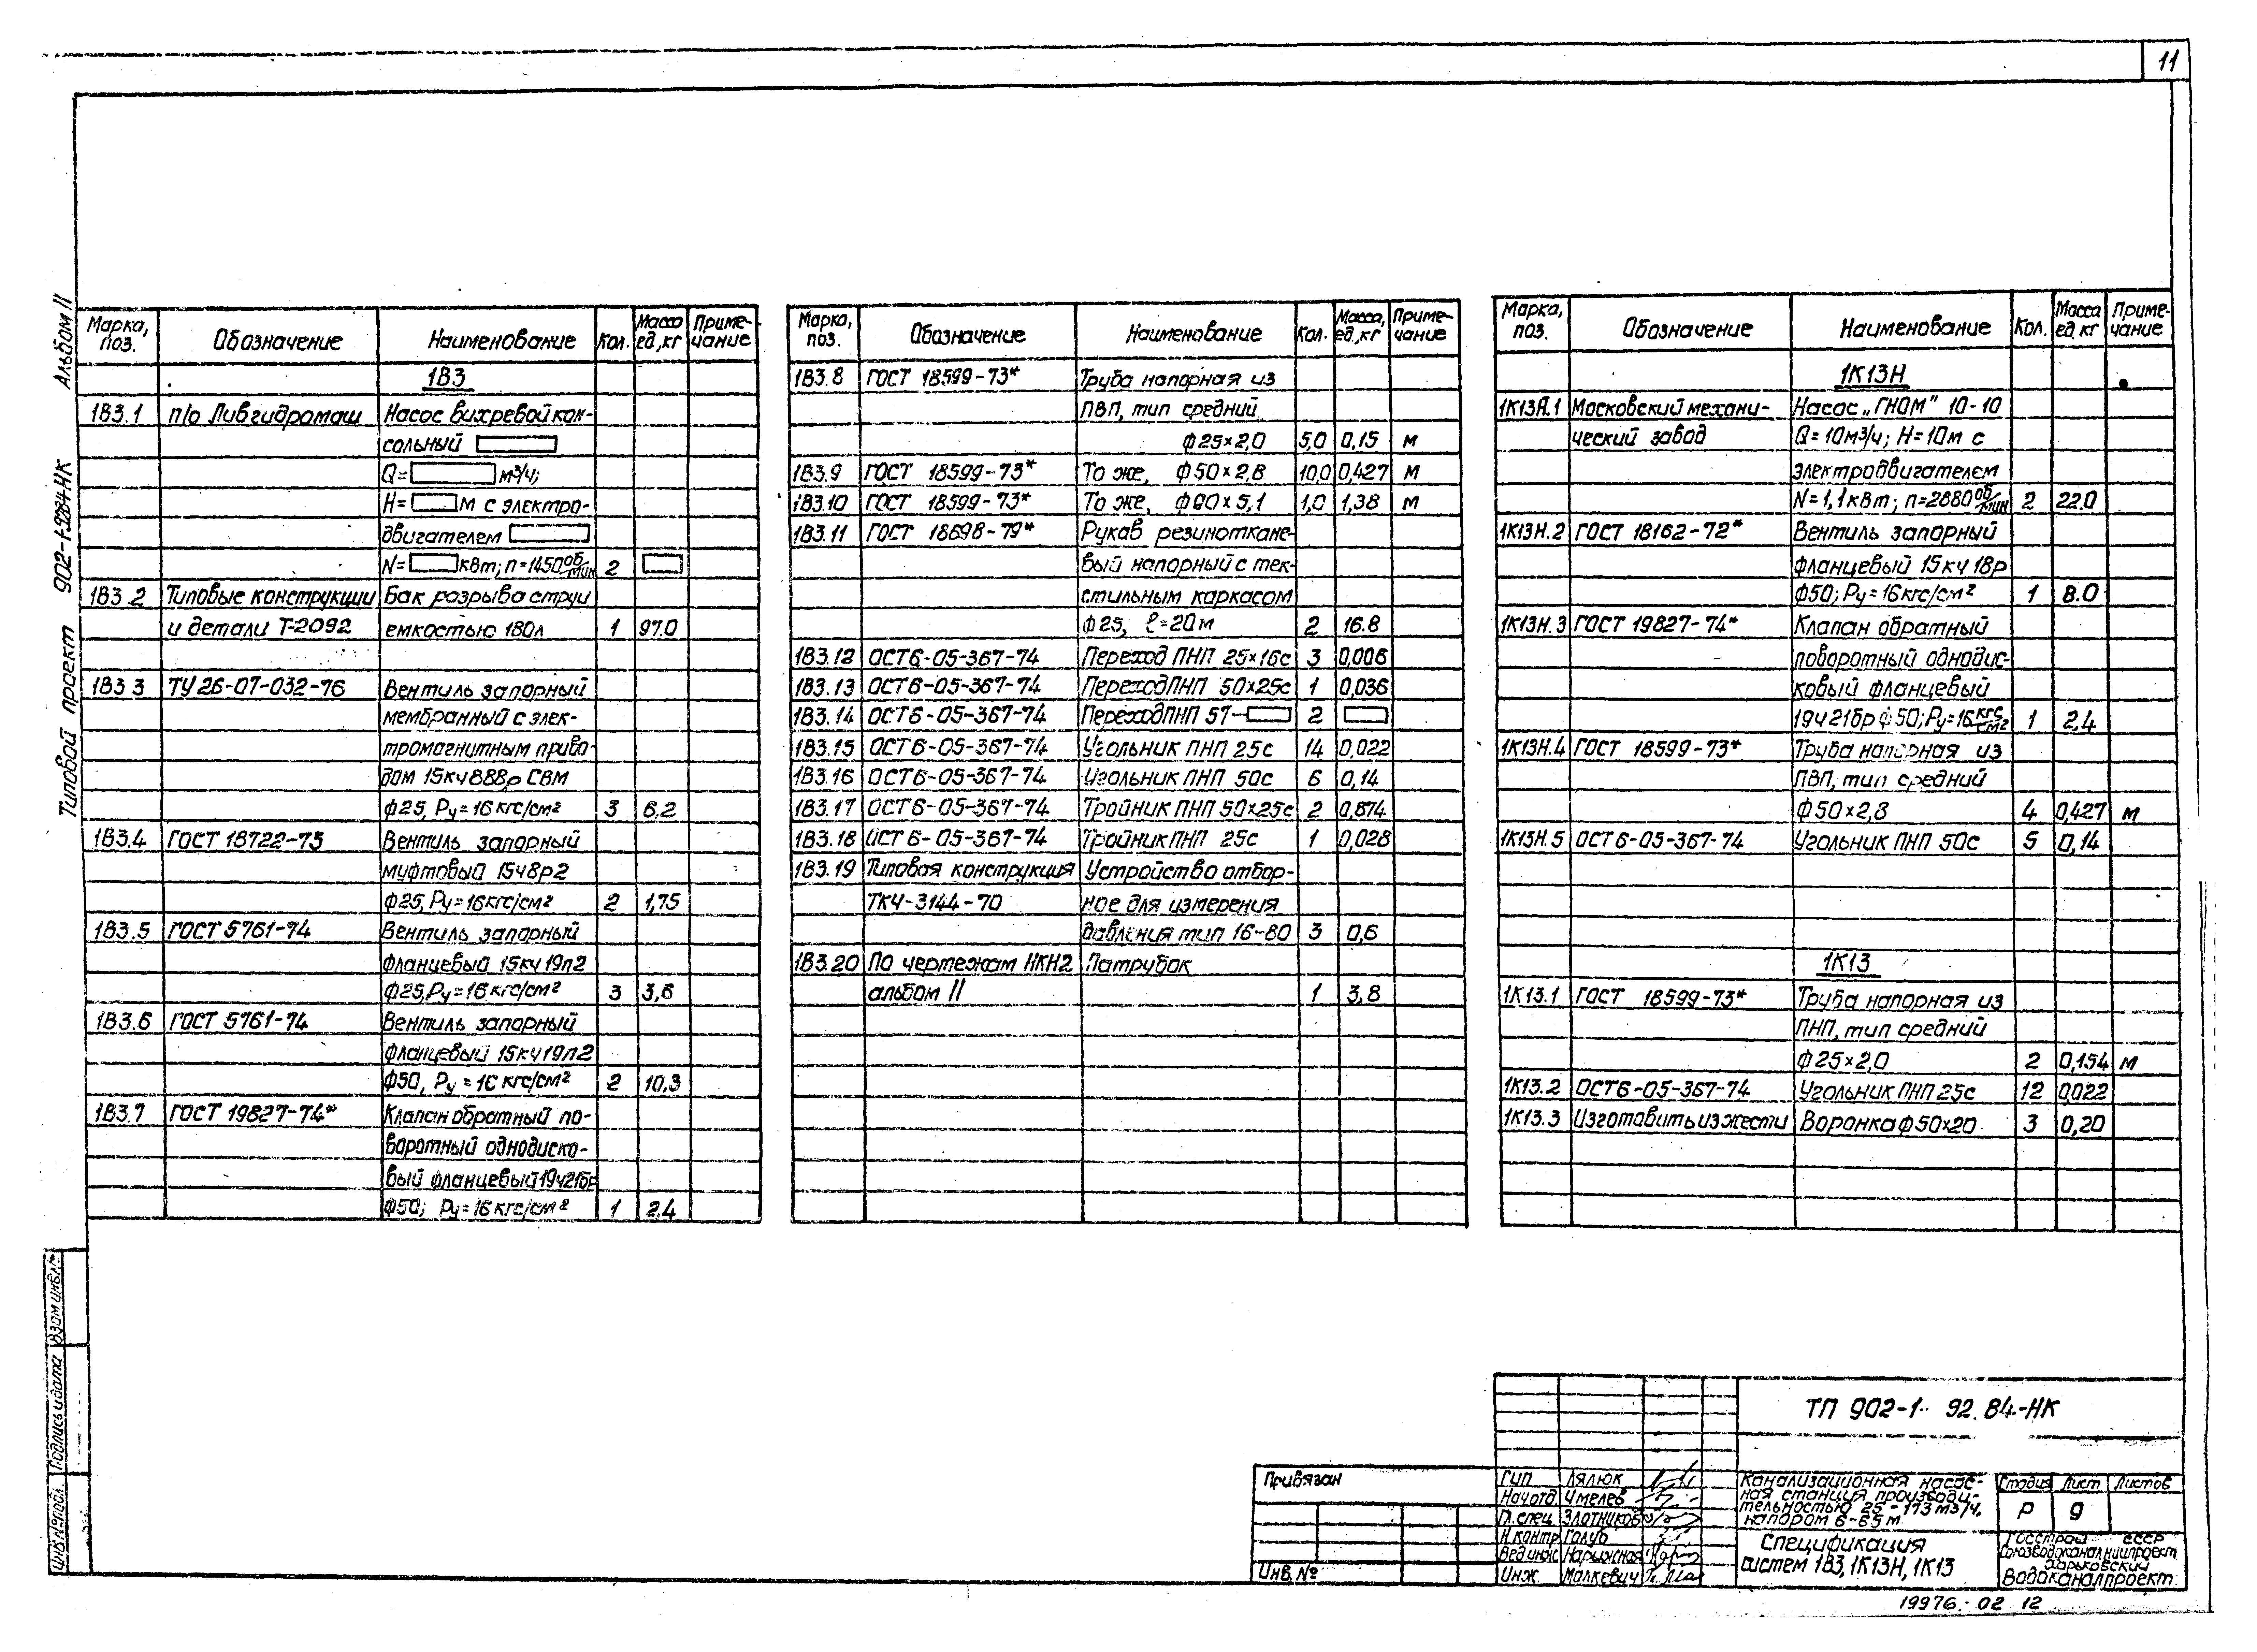 11
Альбом II
Типовой проект 902-1-92.84-НК
Марка, поз. Обозначение Наименование Кол. Масса ед., кг Примечание
1В3
1В3.1 п/о Ливгидромаш Насос вихревой кон-
сольный
Q= м³/ч;
H= м с электро-
двигателем
N= кВт; п=1450 об/мин 2
1В3.2 Типовые конструкции Бак разрыва струи
и детали Т-2092 емкостью 180л 1 97.0
1В3.3 ТУ 26-07-032-76 Вентиль запорный
мембранный с элек-
тромагнитным приво-
дом 15кч888р СВМ
ф25, Ру=16 кгс/см² 3 6,2
1В3.4 ГОСТ 18722-73 Вентиль запорный
муфтовый 15ч8р2
ф25, Ру=16кгс/см² 2 1,75
1В3.5 ГОСТ 5761-74 Вентиль запорный
фланцевый 15кч19п2
ф25, Ру=16 кгс/см² 3 3,6
1В3.6 ГОСТ 5761-74 Вентиль запорный
фланцевый 15кч19п2
ф50, Ру=16 кгс/см² 2 10,3
1В3.7 ГОСТ 19827-74* Клапан обратный по-
воротный однодиско-
вый фланцевый 19ч21бр
ф50; Ру=16 кгс/см² 1 2,4
Марка, поз. Обозначение Наименование Кол. Масса, ед., кг Примечание
1В3.8 ГОСТ 18599-73* Труба напорная из
ПВП, тип средний
ф25×2,0 5,0 0,15 м
1В3.9 ГОСТ 18599-73* То же, ф50×2,8 10,0 0,427 м
1В3.10 ГОСТ 18599-73* То же, ф90×5,1 1,0 1,38 м
1В3.11 ГОСТ 18698-79* Рукав резиноткане-
вый напорный с тек-
стильным каркасом
ф25, ℓ=20м 2 16.8
1В3.12 ОСТ6-05-367-74 Переход ПНП 25×16с 3 0,006
1В3.13 ОСТ6-05-367-74 Переход ПНП 50×25с 1 0,036
1В3.14 ОСТ6-05-367-74 Переход ПНП 57- 2
1В3.15 ОСТ6-05-367-74 Угольник ПНП 25с 14 0,022
1В3.16 ОСТ6-05-367-74 Угольник ПНП 50с 6 0,14
1В3.17 ОСТ6-05-367-74 Тройник ПНП 50×25с 2 0,874
1В3.18 ОСТ6-05-367-74 Тройник ПНП 25с 1 0,028
1В3.19 Типовая конструкция Устройство отбор-
ТКЧ-3144-70 ное для измерения
давления тип 16-80 3 0,6
1В3.20 По чертежам НКН2 Патрубок
альбом II 1 3,8
Марка, поз. Обозначение Наименование Кол. Масса ед. кг Примечание
1К13Н
1К13Н.1 Московский механи- Насос „ГНОМ" 10-10
ческий завод Q=10м³/ч; H=10м с
электродвигателем
N=1,1кВт; п=2880 об/мин 2 22.0
1К13Н.2 ГОСТ 18162-72* Вентиль запорный
фланцевый 15кч18р
ф50; Ру=16кгс/см² 1 8.0
1К13Н.3 ГОСТ 19827-74* Клапан обратный
поворотный однодис-
ковый фланцевый
19ч21бр ф50; Ру=16 кгс/см² 1 2,4
1К13Н.4 ГОСТ 18599-73* Труба напорная из
ПВП, тип средний
ф50×2,8 4 0,427 м
1К13Н.5 ОСТ6-05-367-74 Угольник ПНП 50с 5 0,14
1К13
1К13.1 ГОСТ 18599-73* Труба напорная из
ПНП, тип средний
ф25×2,0 2 0,154 м
1К13.2 ОСТ6-05-367-74 Угольник ПНП 25с 12 0,022
1К13.3 Изготовить из жести Воронка ф50×20 3 0,20
Инв.№подл. Подпись и дата Взам.инв.№
Привязан
Инв. №
ТП 902-1-92.84-НК
Гип Лялюк
Нач.отд. Чмелев
Гл.спец. Злотников
Н.контр. Голуб
Вед.инж. Нарыжная
Инж. Малкевич
Канализационная насос-
ная станция производи-
тельностью 25-173 м3/ч,
напором 6-65 м
Стадия Лист Листов
Р 9
Спецификация
систем 1В3, 1К13Н, 1К13
Госстрой СССР
Союзводоканалниипроект
Харьковский
Водоканалпроект
19976-02 12